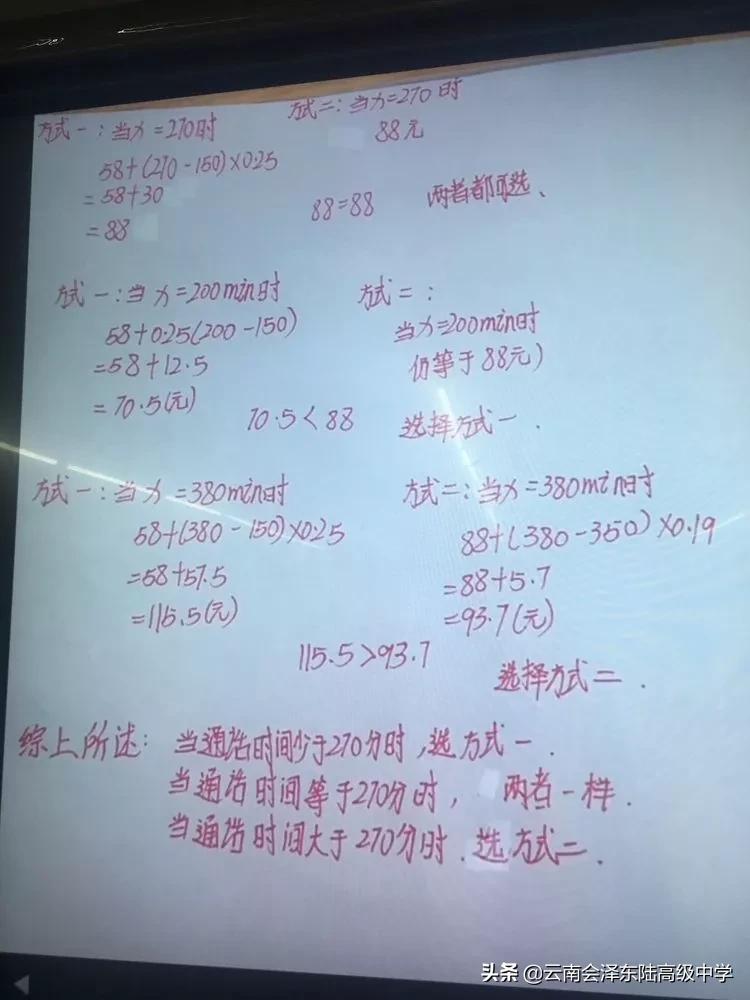 方式一：当x=270时
58+(270-150)×0.25
=58+30
=88
方式二：当x=270时
88元
88=88 两者都可选、
方式一：当x=200min时
58+0.25(200-150)
=58+12.5
=70.5(元)
方式二：
当x=200min时
仍等于88元)
70.5<88 选择方式一.
方式一：当x=380min时
58+(380-150)×0.25
=58+57.5
=115.5(元)
方式二：当x=380min时
88+(380-350)×0.19
=88+5.7
=93.7(元)
115.5>93.7
选择方式二.
综上所述：当通话时间少于270分时,选方式一.
当通话时间等于270分时，两者一样.
当通话时间大于270分时.选方式二.
头条 @云南会泽东陆高级中学